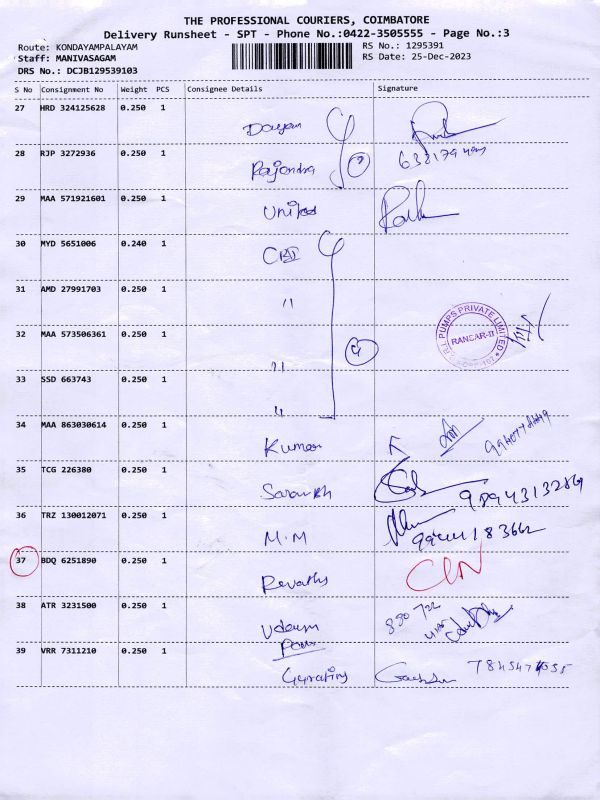 THE PROFESSIONAL COURIERS, COIMBATORE
Delivery Runsheet - SPT - Phone No.:0422-3505555 - Page No.:3
Route: KONDAYAMPALAYAM
RS No.: 1295391
Staff: MANIVASAGAM
RS Date: 25-Dec-2023
DRS No.: DCJB129539103
S No Consignment No Weight PCS Consignee Details Signature
27 HRD 324125628 0.250 1
28 RJP 3272936 0.250 1 Rajendra 2
29 MAA 571921601 0.250 1 United
30 MYD 5651006 0.240 1 CRI
31 AMD 27991703 0.250 1 "
32 MAA 573506361 0.250 1 " 4 PUMPS PRIVATE LIMITED
33 SSD 663743 0.250 1 "
34 MAA 863030614 0.250 1 Kumar
35 TCG 226380 0.250 1
36 TRZ 130012071 0.250 1 M.M
37 BDQ 6251890 0.250 1 Revathy
38 ATR 3231500 0.250 1
39 VRR 7311210 0.250 1